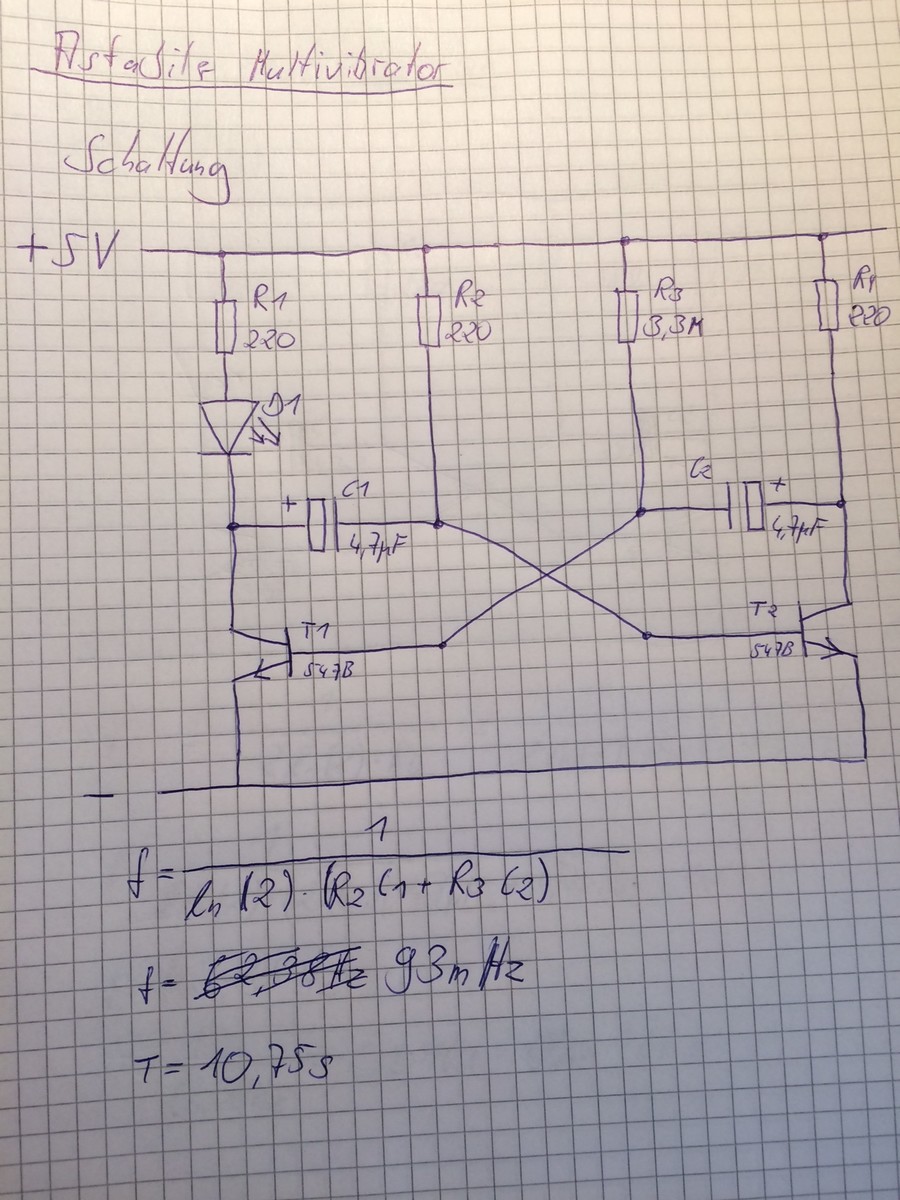 Astabile Multivibrator
Schaltung
+5V
R1
220
R2
220
R3
3,3M
R4
220
D1
+ C1
4,7µF
C2 +
4,7µF
T1
547B
T2
547B
−
f = 1 / ln(2) · (R2 C1 + R3 C2)
f = 62,38Hz 93mHz
T = 10,75s